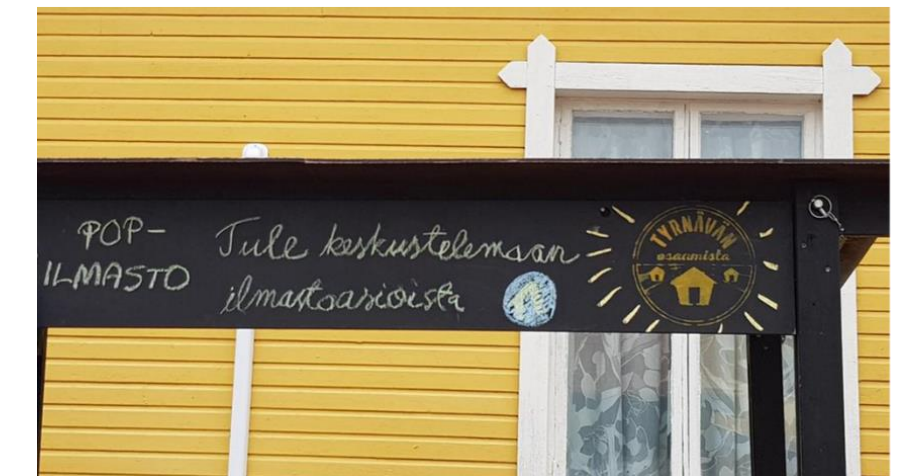 POP-
ILMASTO
Tule keskustelemaan
ilmastoasioista
TYRNÄVÄN
osaamista